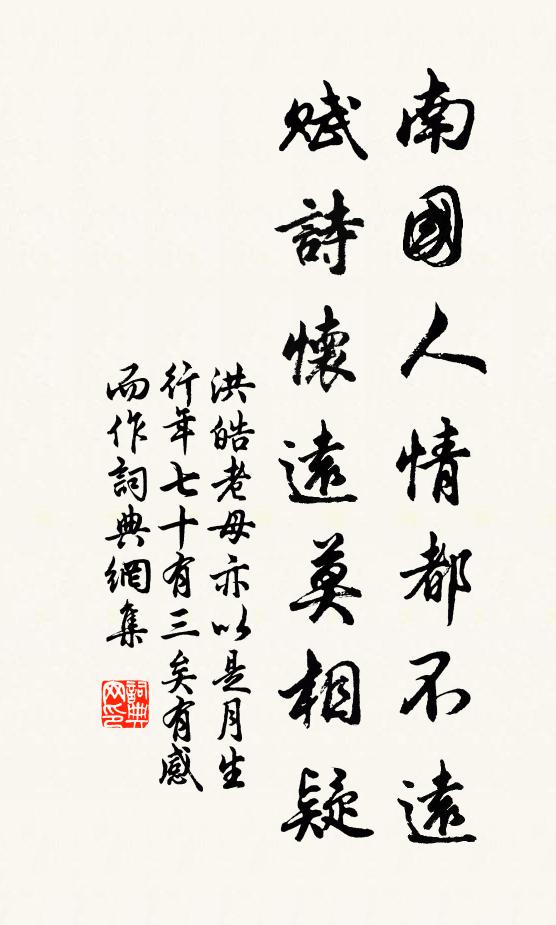 南國人情都不遠
賦詩懷遠莫相疑
洪皓老母亦以是月生
行年七十有三矣有感
而作詞典網集
詞典
网印